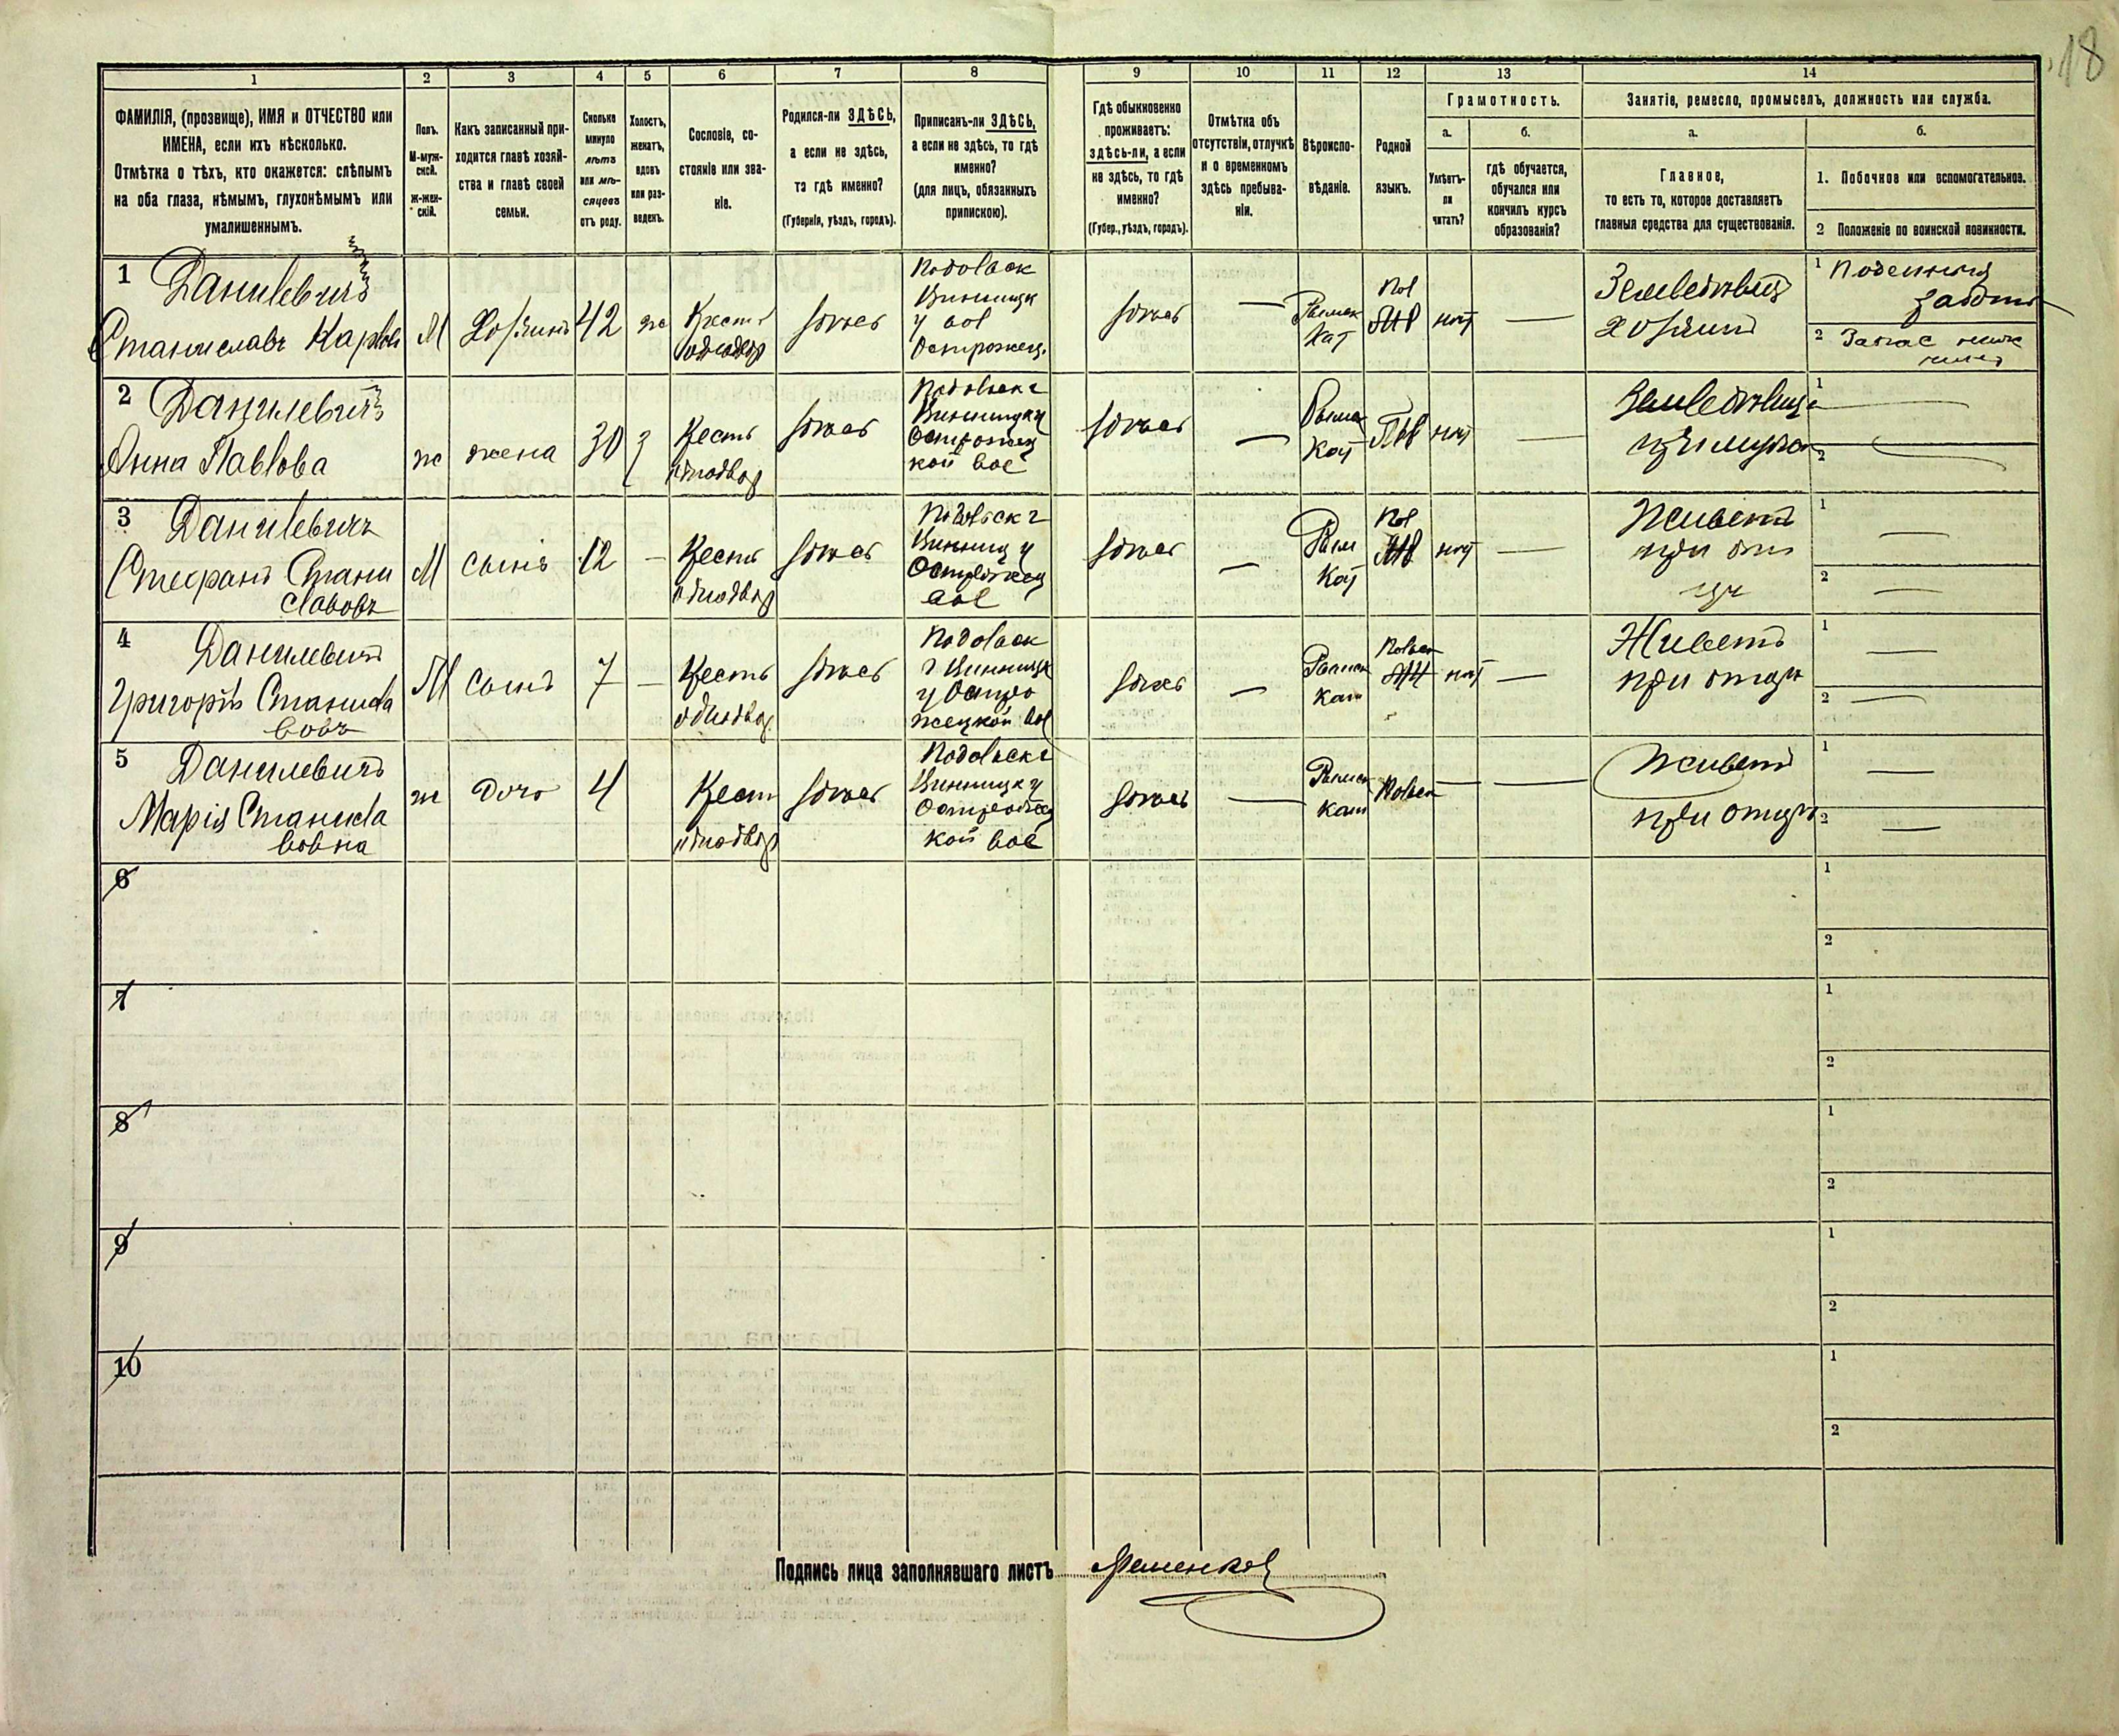 18
1
2
3
4
5
6
7
8
9
10
11
12
13
14
ФАМИЛІЯ, (прозвище), ИМЯ и ОТЧЕСТВО или
ИМЕНА, если ихъ нѣсколько.
Отмѣтка о тѣхъ, кто окажется: слѣпымъ
на оба глаза, нѣмымъ, глухонѣмымъ или
умалишеннымъ.
Полъ.
М-муж-
ской.
ж-жен-
скій.
Какъ записанный при-
ходится главѣ хозяй-
ства и главѣ своей
семьи.
Сколько
минуло
лѣтъ
или мѣ-
сяцевъ
отъ роду.
Холостъ,
женатъ,
вдовъ
или раз-
веденъ.
Сословіе, со-
стояніе или зва-
ніе.
Родился-ли ЗДѢСЬ,
а если не здѣсь,
то гдѣ именно?
(Губернія, уѣздъ, городъ).
Приписанъ-ли ЗДѢСЬ,
а если не здѣсь, то гдѣ
именно?
(для лицъ, обязанныхъ
припискою).
Гдѣ обыкновенно
проживаетъ:
здѣсь-ли, а если
не здѣсь, то гдѣ
именно?
(Губер., уѣздъ, городъ).
Отмѣтка объ
отсутствіи, отлучкѣ
и о временномъ
здѣсь пребыва-
ніи.
Вѣроиспо-
вѣданіе.
Родной
языкъ.
Грамотность.
а.
б.
Умѣетъ-
ли
читать?
гдѣ обучается,
обучался или
кончилъ курсъ
образованія?
Занятіе, ремесло, промыселъ, должность или служба.
а.
б.
Главное,
то есть то, которое доставляетъ
главныя средства для существованія.
1. Побочное или вспомогательное.
2 Положеніе по воинской повинности.
1 Данилевичъ
Станиславъ Карлов
М
Хозяинъ
42
ж
Крест
однодвор
здѣсь
Подольск
Винницк
у вол
Острожец.
здѣсь
—
Римск
Кат
Пол
нѣт
—
Земледѣлец
хозяинъ
1 Поденныя
2 Запас ниж
2 Данилевичъ
Анна Павлова
ж
жена
30
З
Крест
однодвор
здѣсь
Подольск г
Винницк у
Острожец
кой вол
здѣсь
—
Римск
Кат
нѣт
—
1 —
2 —
3 Данилевичъ
Стефанъ Стани
славовъ
М
сынъ
12
—
Крест
однодвор
здѣсь
Подольск г
Винниц у
Острожец
вол
здѣсь
—
Рим
Кат
Пол
нѣт
—
Живетъ
при от
цѣ
1 —
2 —
4 Данилевичъ
Григорій Станисла
вовъ
М
сынъ
7
—
Крестъ
однодвор
здѣсь
Подольск
г Винницк
у Остро
жецкой вол
здѣсь
—
Римск
Кат
Польск
нѣт
—
Живетъ
при отцѣ
1 —
2 —
5 Данилевичъ
Марія Станисла
вовна
ж
дочь
4
Крест
однодвор
здѣсь
Подольск г
Винницк у
Острожец
кой вол
здѣсь
—
Римск
кат
Польск
—
—
Живетъ
при отцѣ
1 —
2 —
6
1
2
7
1
2
8
1
2
9
1
2
10
1
2
Подпись лица заполнявшаго листъ